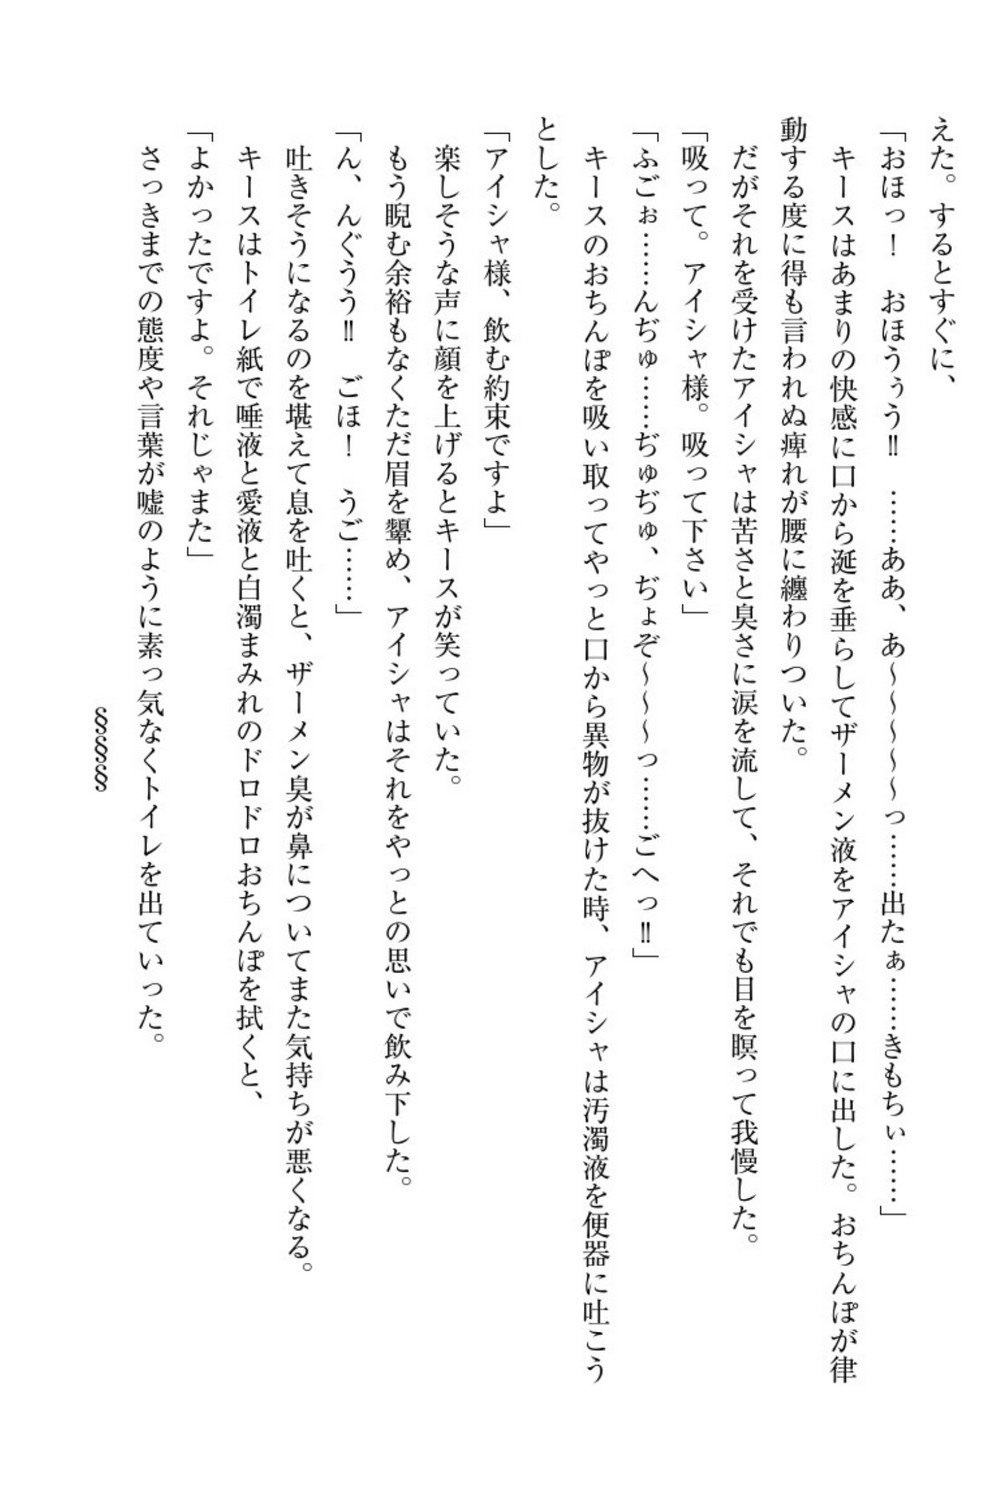 えた。するとすぐに、
「おほっ！　おほうぅう‼　……ああ、あ～～～～～っ……出たぁ……きもちぃ……」
キースはあまりの快感に口から涎を垂らしてザーメン液をアイシャの口に出した。おちんぽが律
動する度に得も言われぬ痺れが腰に纏わりついた。
だがそれを受けたアイシャは苦さと臭さに涙を流して、それでも目を瞑って我慢した。
「吸って。アイシャ様。吸って下さい」
「ふごぉ……んぢゅ……ぢゅぢゅ、ぢょぞ～～～っ……ごへっ‼」
キースのおちんぽを吸い取ってやっと口から異物が抜けた時、アイシャは汚濁液を便器に吐こう
とした。
「アイシャ様、飲む約束ですよ」
楽しそうな声に顔を上げるとキースが笑っていた。
もう睨む余裕もなくただ眉を顰め、アイシャはそれをやっとの思いで飲み下した。
「ん、んぐうう‼　ごほ！　うご……」
吐きそうになるのを堪えて息を吐くと、ザーメン臭が鼻についてまた気持ちが悪くなる。
キースはトイレ紙で唾液と愛液と白濁まみれのドロドロおちんぽを拭くと、
「よかったですよ。それじゃまた」
さっきまでの態度や言葉が嘘のように素っ気なくトイレを出ていった。
§§§§